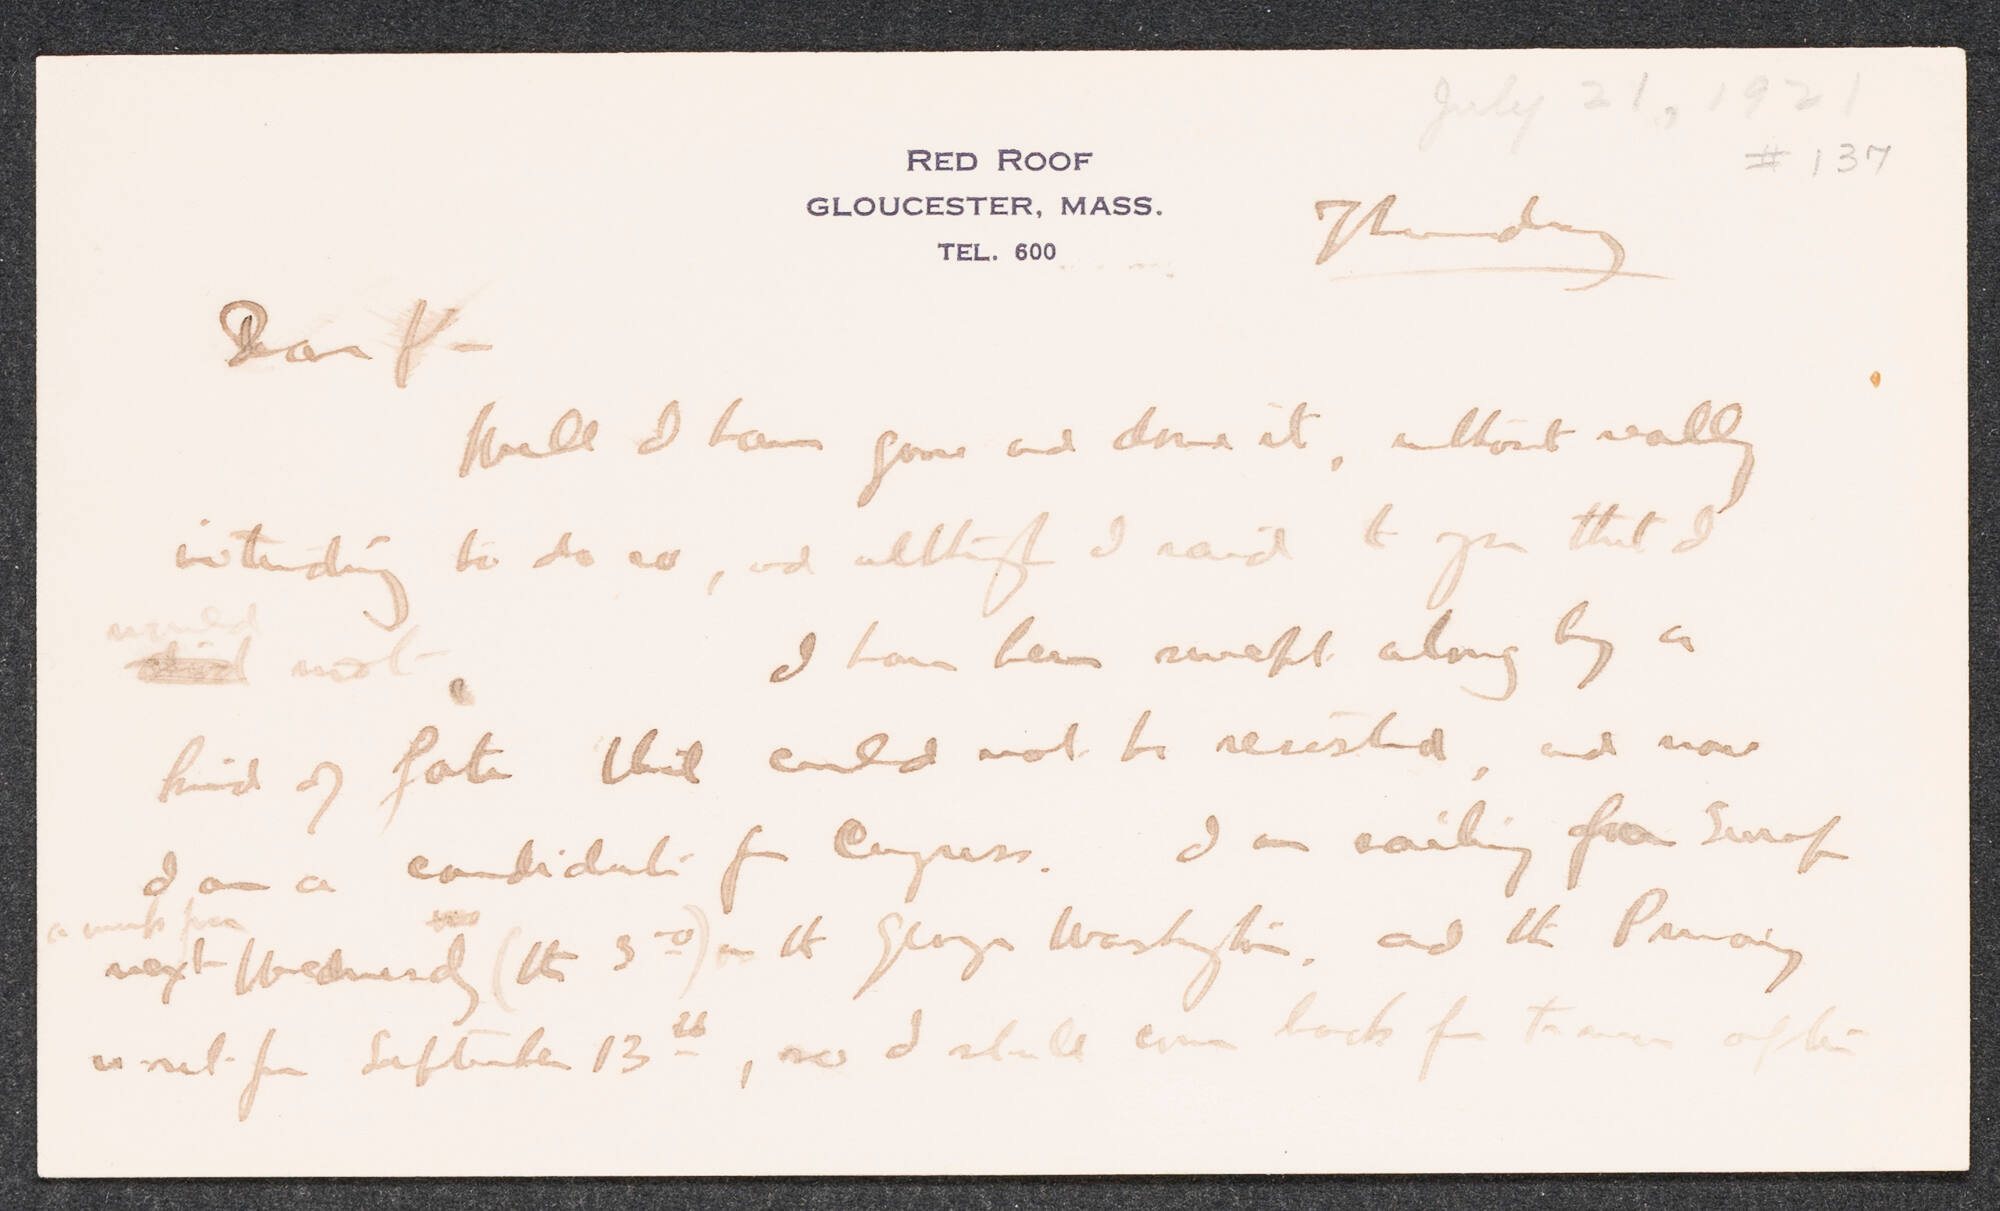 July 21, 1921
# 137
RED ROOF
GLOUCESTER, MASS.
TEL. 600
Thursday
Dear P—
Well I have gone and done it, without really
intending to do so, and although I said to you that I
would
did not. I have been swept along by a
kind of fate that could not be resisted, and now
I am a candidate for Congress. I am sailing for Europe
a week from
next Wednesday (the 3rd) on the George Washington, and the Primary
is set for September 13th, so I shall come back for two weeks after